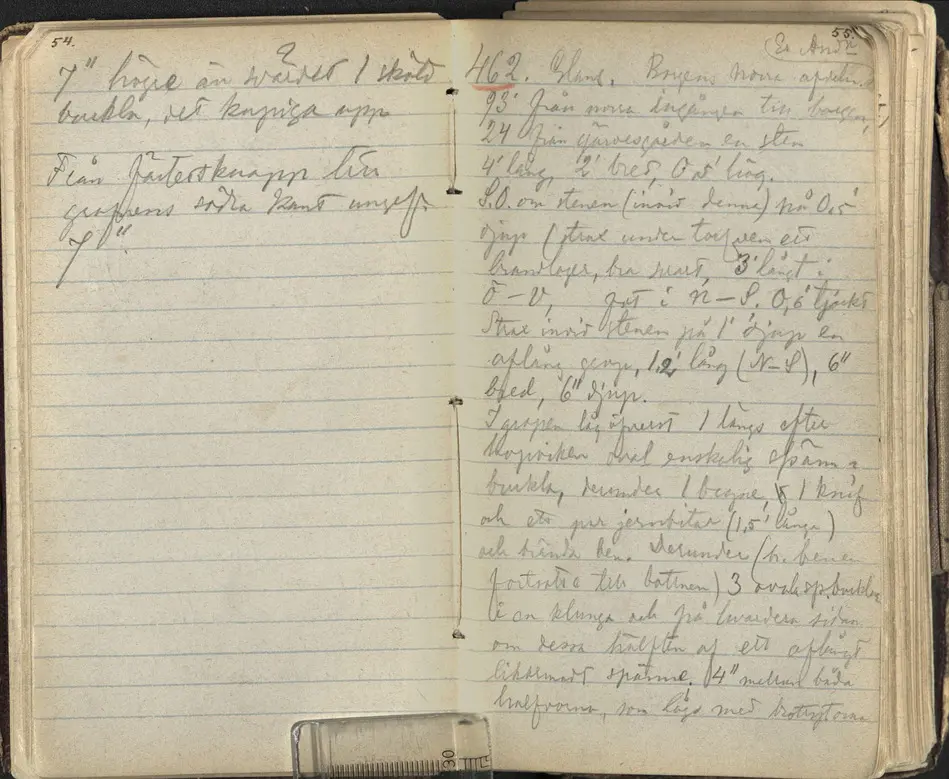 54.
7" högre än svärdet 1 sköld
buckla, det kupiga upp
Från fästets knapp till
grafvens södra kant ungefär
7"
55.
462. Bogens norra
93' från norra ingången till borgen,
24' från en sten
4' lång, 2' bred, 0,5' hög.
S.O. om stenen (invid denna) på 0,5'
djup (strax under torfven ett
brandlager, bra svart, 3' långt i
Ö–V, i N–S. 0,6' tjockt
Strax invid stenen på 1' djup en
aflång grop, 1,2' lång (N–S), 6"
bred, 6" djup.
I gropen låg öfverst 1 längs efter
oval enskalig spänn-
buckla, derunder 1 1 knif
och ett par jernbitar (1,5' långa)
och brända ben. Derunder (br. benen
fortsatte till bottnen) 3 ovala sp.bucklor
i en klunga och på hvardera sidan
om dessa hälften af ett aflångt
likarmadt spänne, 4" mellan båda
halfvorna, som lågo med brottytorna